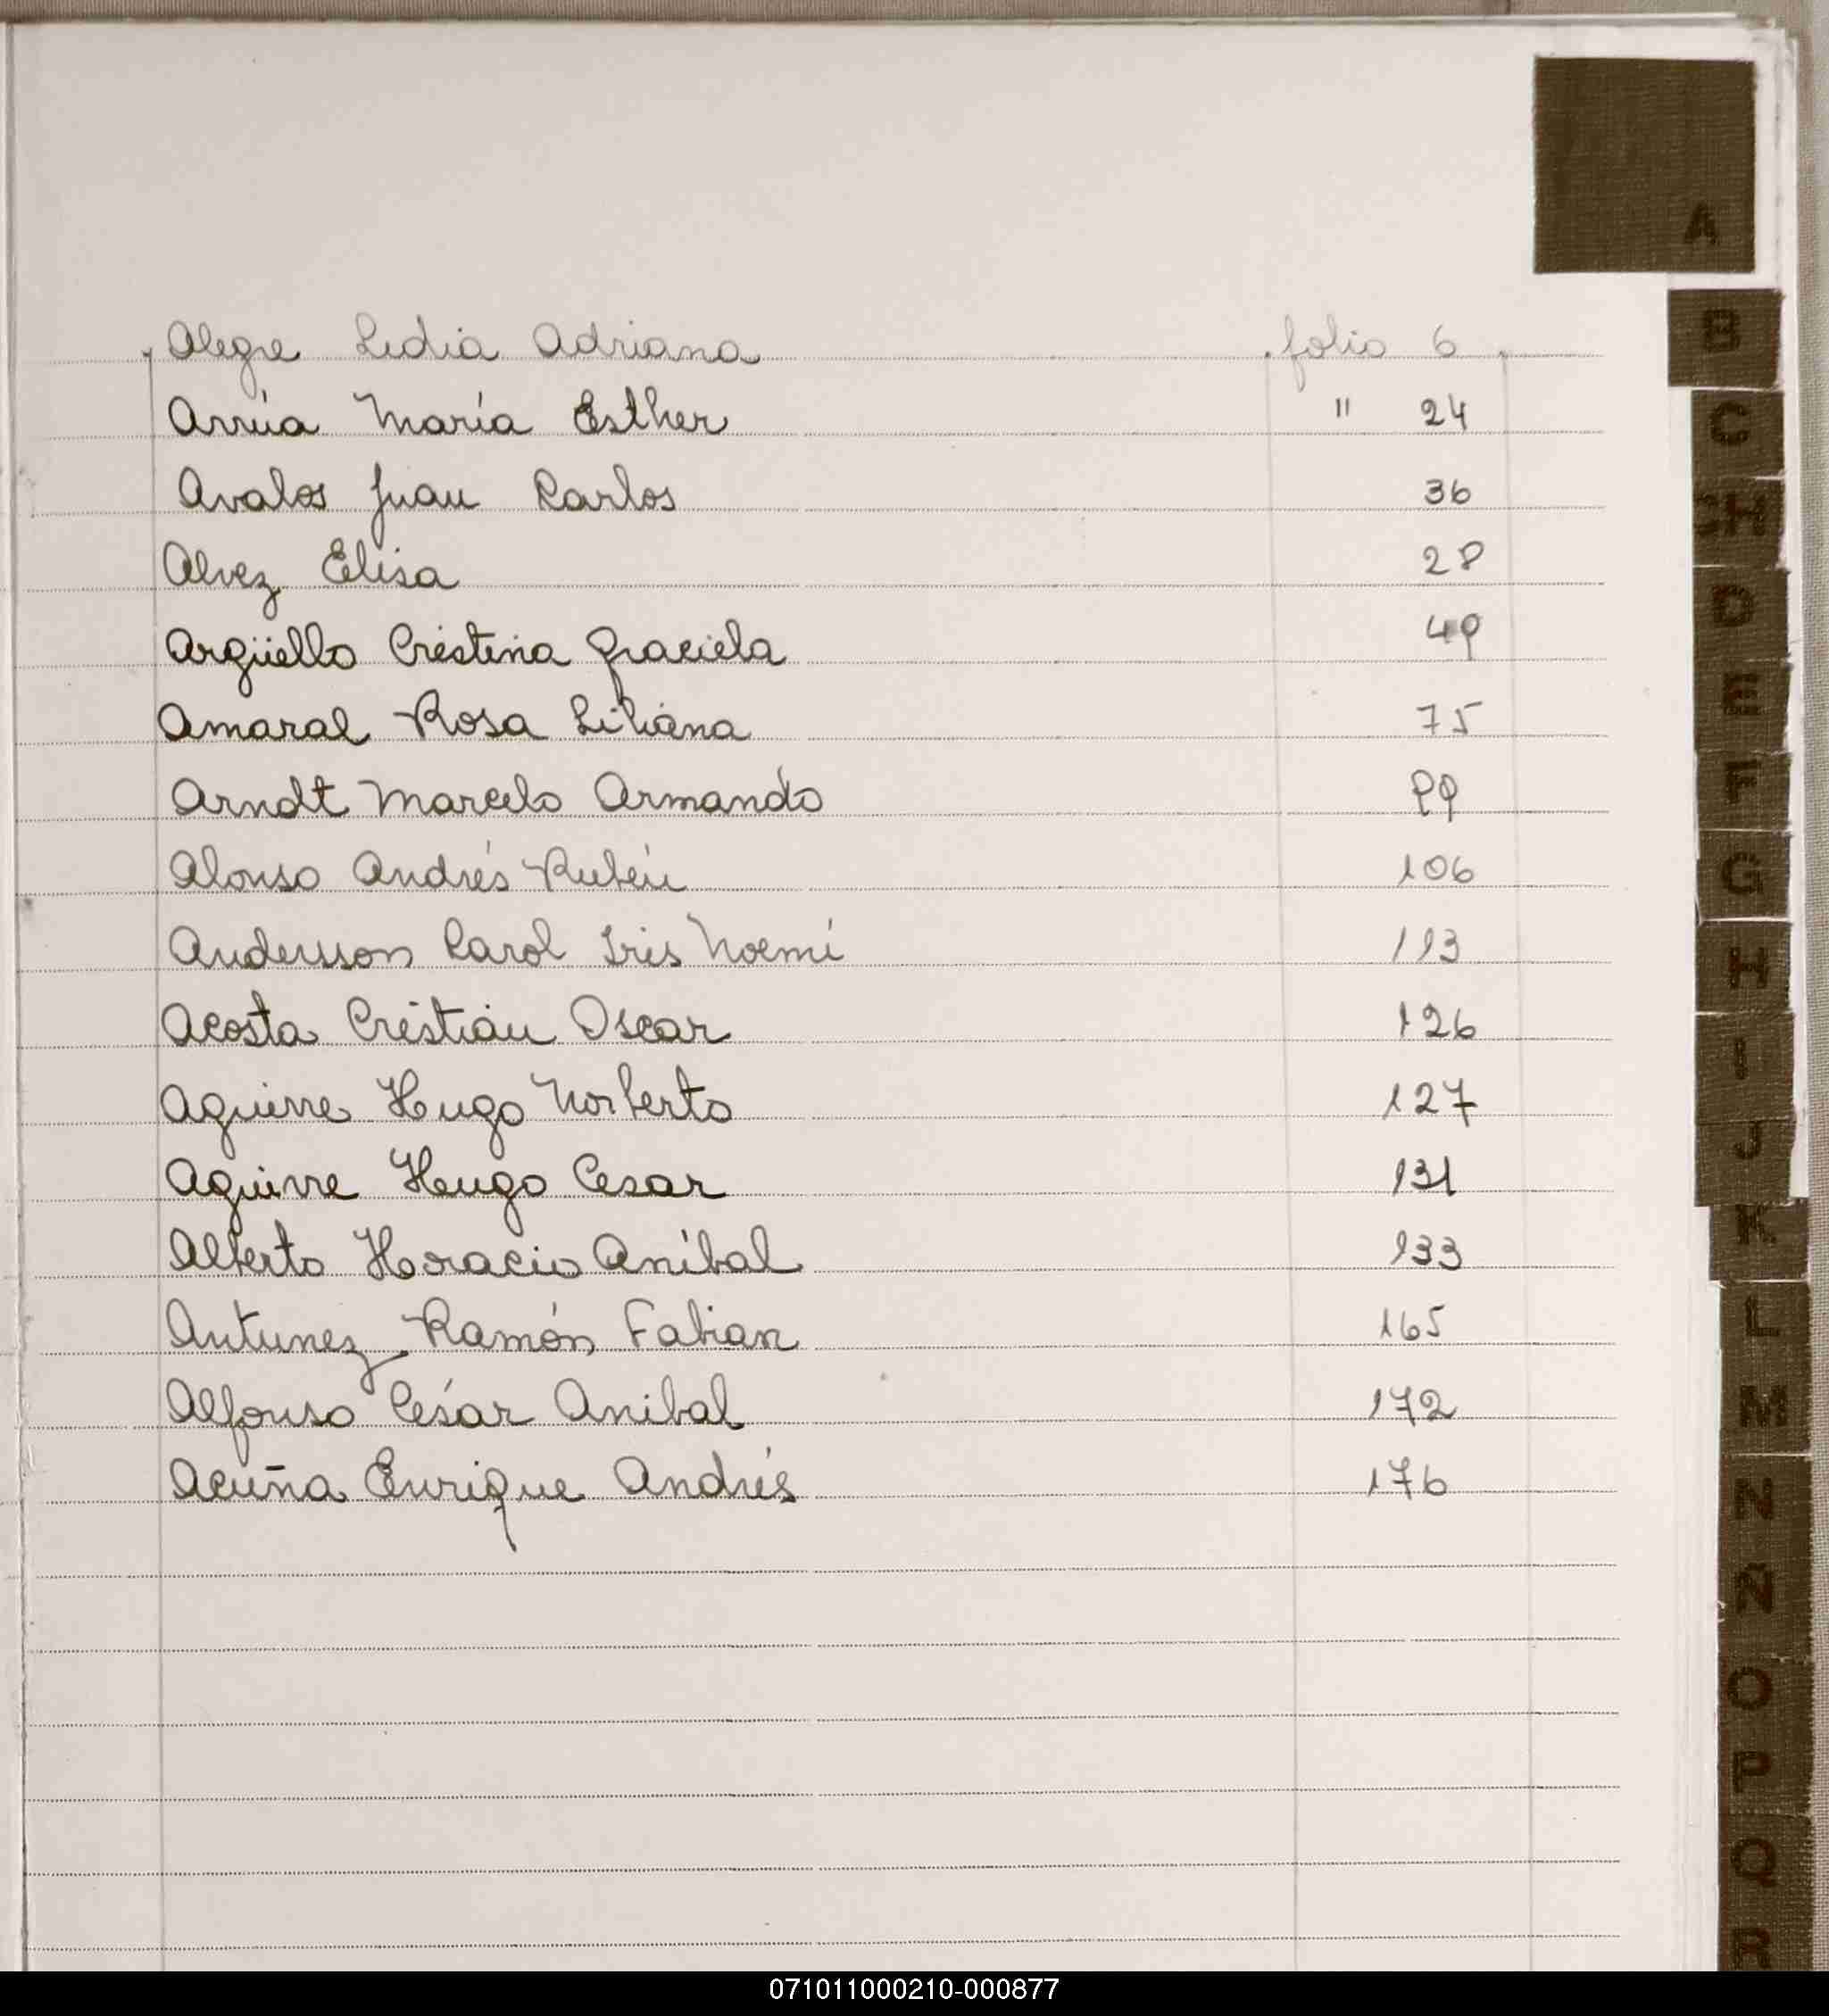 A
Alegre Lidia Adriana folio 6
Arrúa María Esther " 24
Avalos Juan Carlos 36
Alvez Elisa 28
Argüello Cristina Graciela 49
Amaral Rosa Liliana 75
Arndt Marcelo Armando 89
Alonso Andrés Rubén 106
Andersson Carol Iris Noemí 113
Acosta Cristián Oscar 126
Aguirre Hugo Norberto 127
Aguirre Hugo Cesar 131
Alberto Horacio Aníbal 133
Antunez Ramón Fabian 165
Alfonso César Anibal 172
Acuña Enrique Andrés 176
B
C
CH
D
E
F
G
H
I
J
K
L
M
N
Ñ
O
P
Q
R
071011000210-000877